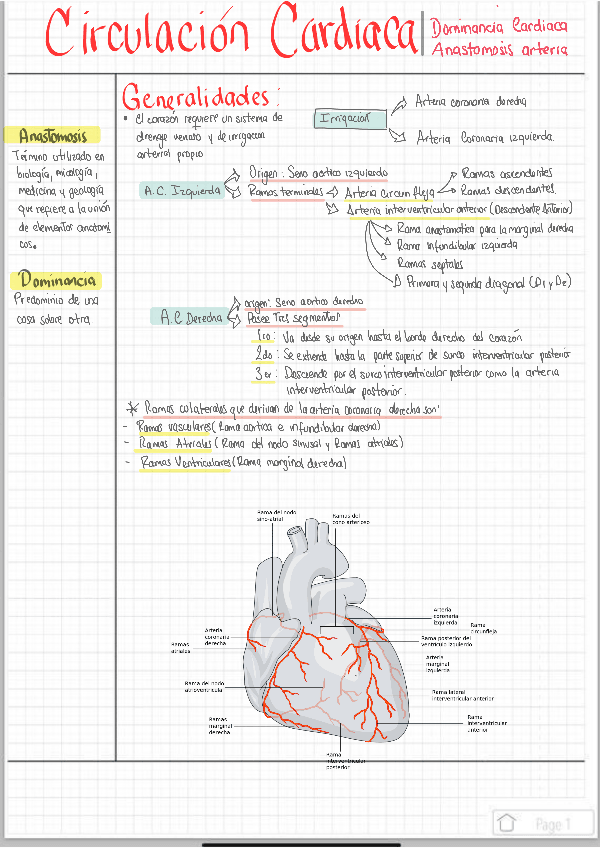 Circulación Cardiaca
Dominancia Cardiaca
Anastomosis arteria
Anastomosis
Término utilizado en
biología, micología,
medicina y geología
que refiere a la unión
de elementos anatomi
cos.
Dominancia
Predominio de una
cosa sobre otra
Generalidades:
• El corazón requiere un sistema de
drenage venoso y de irrigacion
arterial propio
Irrigación
Arteria coronaria derecha
Arteria Coronaria izquierda.
A.C. Izquierda
Origen: Seno aortico izquierdo
Ramas terminales
Arteria circunfleja
Ramas ascendentes
Ramas descendentes.
Arteria interventricular anterior (Descendente Anterior)
Rama anastomatica para la marginal derecha
Rama infundibular izquierda
Ramas septales
Primera y segunda diagonal (D1 y D2)
A.C Derecha
origen: Seno aortico derecho
Posee Tres segmentos
1ro: Va desde su origen hasta el borde derecho del corazón
2do: Se extiende hasta la parte superior de surco interventricular posterior
3er: Desciende por el surco interventricular posterior como la arteria
interventricular posterior.
* Ramas colaterales que derivan de la arteria coronaria derecha son:
- Ramas vasculares (Rama aortica e infundibular derecha)
- Ramas Atriales (Rama del nodo sinusal y Ramas atriales)
- Ramas Ventriculares (Rama marginal derecha)
Rama del nodo
sino-atrial
Ramas del
cono arterioso
Arteria
coronaria
izquierda
Rama
circunfleja
Arteria
coronaria
derecha
Ramas
atriales
Rama posterior del
ventrículo izquierdo
Arteria
marginal
izquierda
Rama del nodo
atrioventricular
Rama lateral
interventricular anterior
Ramas
marginal
derecha
Rama
interventricular
anterior
Rama
interventricular
posterior
Page 1